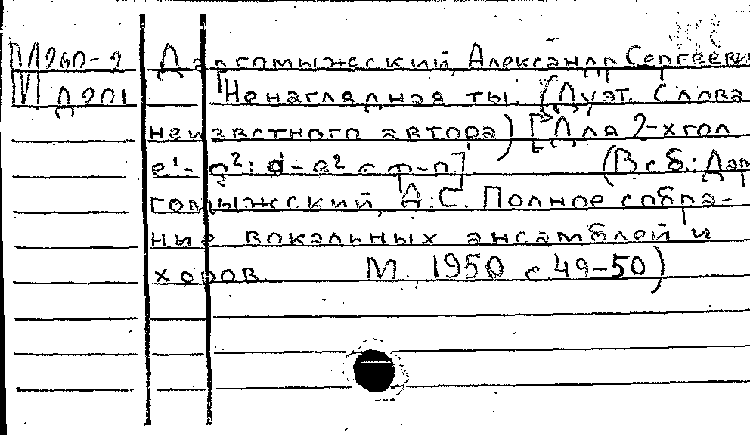 М260-2 Даргомыжский, Александр Сергееви
М Д201 Ненаглядная ты. (Дуэт. Слова
неизвестного автора) [Для 2-х гол
e¹-g²; d-e² с ф-п] (В сб.: Дар
гомыжский, А.С. Полное собра-
ние вокальных ансамблей и
хоров М. 1950 с 49-50)